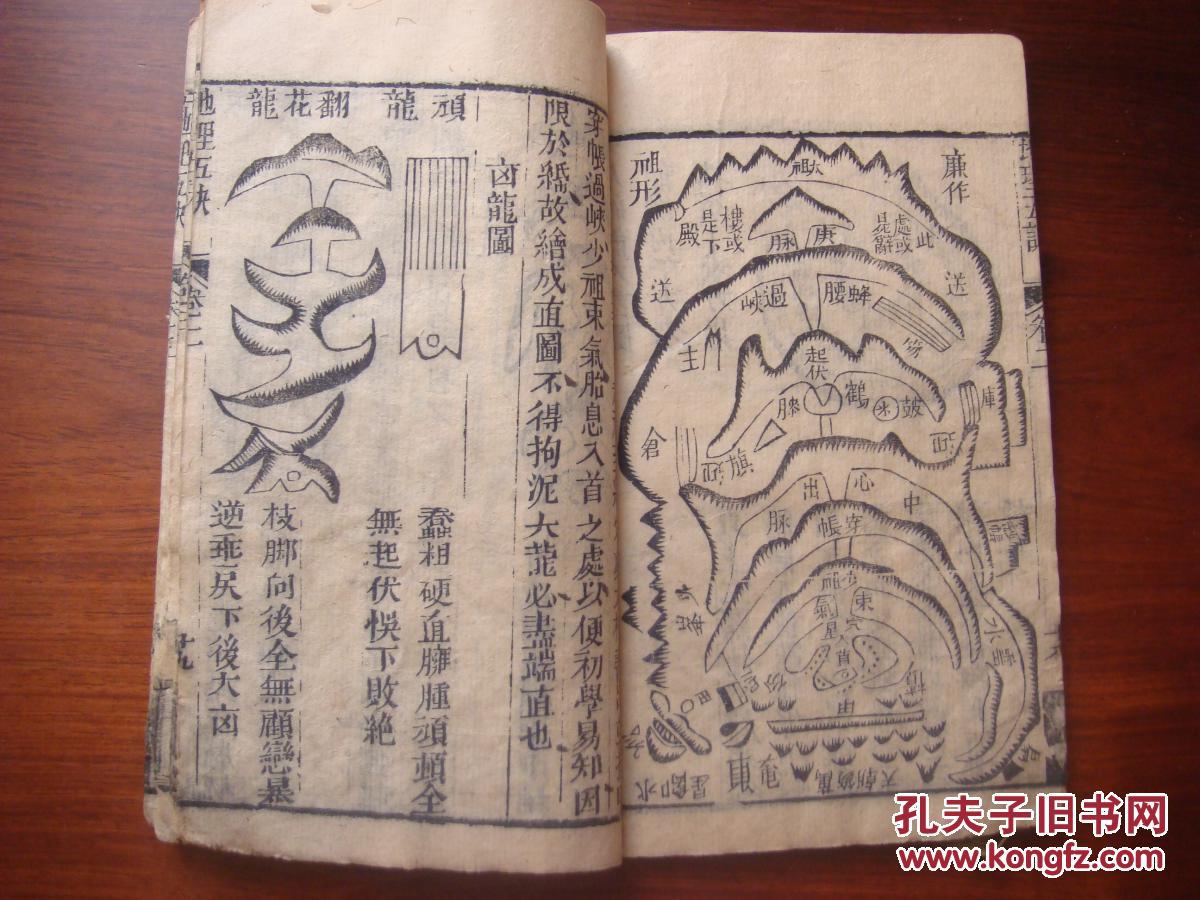 廉作
祖形
太祖
此處或是辭樓或是下殿
庚脉
送
送
蜂腰
過峽
主
起伏
鶴膝
皷
旗
迎
迎
倉
庫
中心出脉
穿帳
少祖
束氣
星
水
天朝
水口
穿帳過峽少祖束氣胎息入首之處以便初學易知因
限於紙故繪成直圖不得拘泥大龍必盡端直也
凶龍圖
頑龍
蠢粗硬直臃腫頑頓全
無起伏悞下敗絶
翻花龍
枝脚向後全無顧戀暴
逆乖戾下後大凶
地理五訣
卷二
十九
孔夫子旧书网
www.kongfz.com